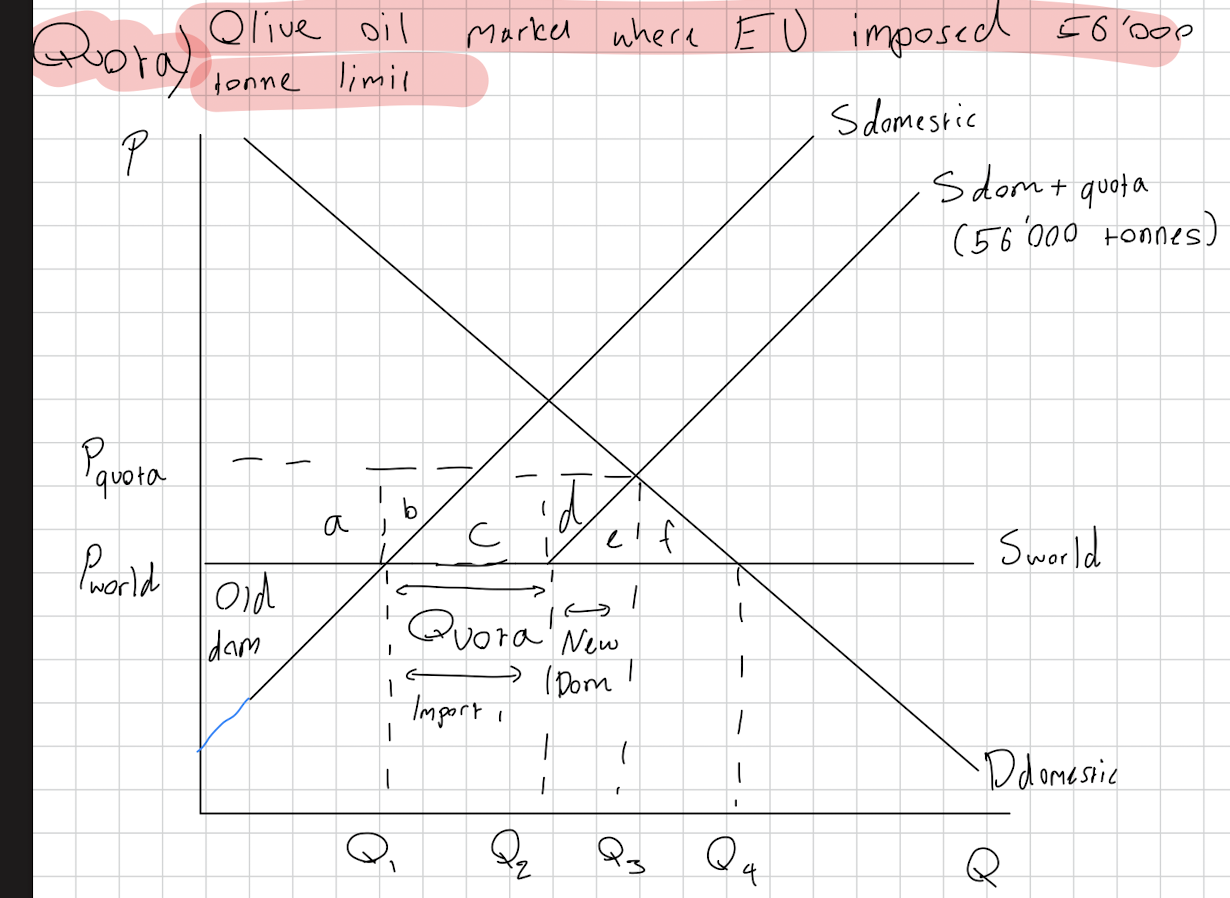 Quota) Olive oil market where EU imposed 56'000
tonne limit
P
Sdomestic
Sdom + quota
(56'000 tonnes)
Pquota
a b c d e f
Pworld
Sworld
Old
dom
Quota
New
Dom
Import
Ddomestic
Q1 Q2 Q3 Q4 Q